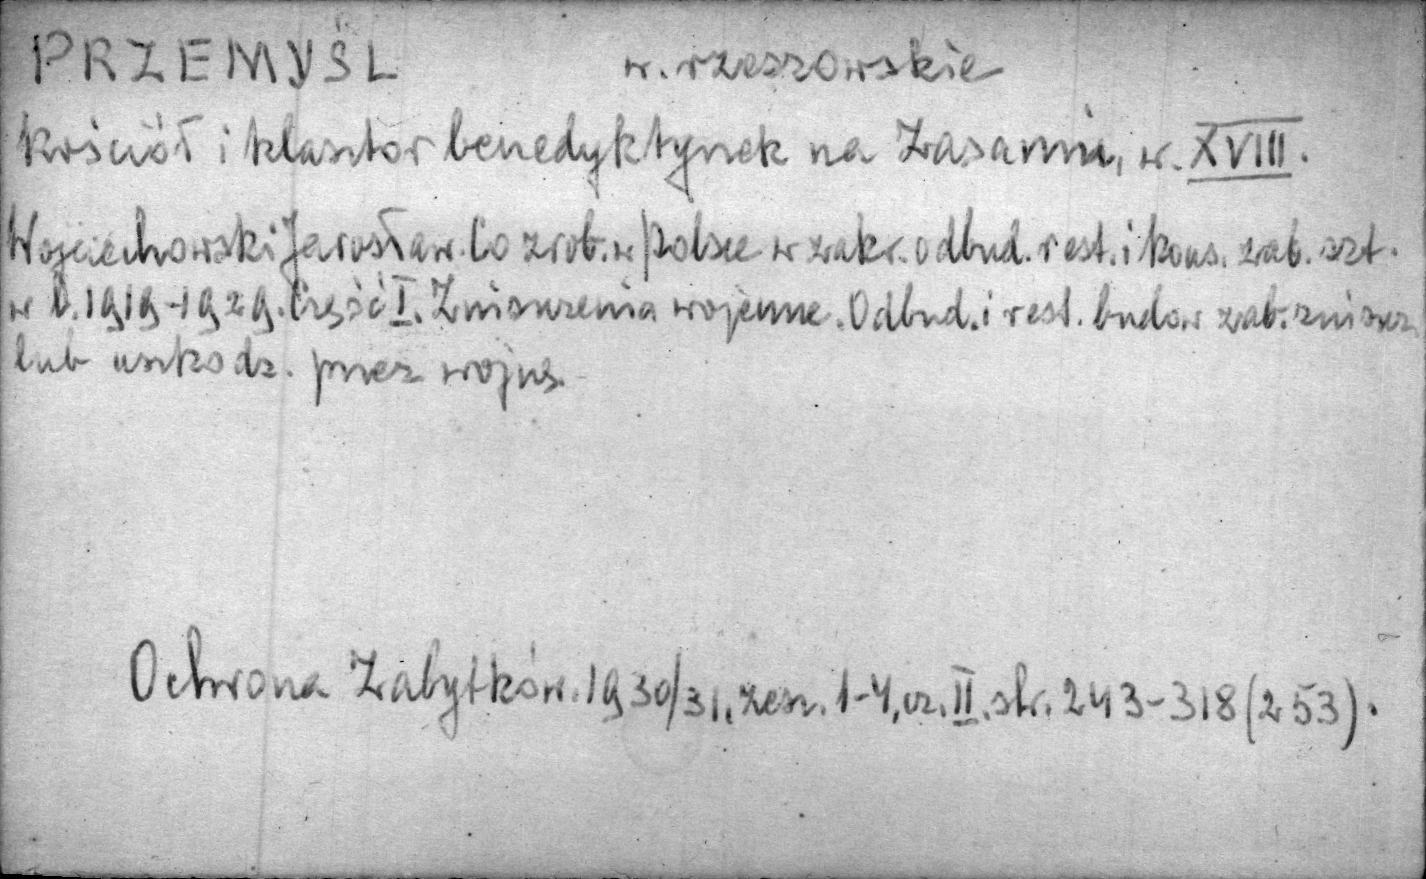 PRZEMYŚL w. rzeszowskie
Kościół i klasztor benedyktynek na Zasaniu, w. XVIII.
Wojciechowski Jarosław. Co zrob. w Polsce w zakr. odbud. rest. i kons. zab. szt.
w l. 1919-1929. Część I. Zniszczenia wojenne. Odbud. i rest. budow zab. zniszcz.
lub uszkodz. przez wojnę.
Ochrona Zabytków. 1930/31, zesz. 1-4, cz. II. str. 243-318 (253).